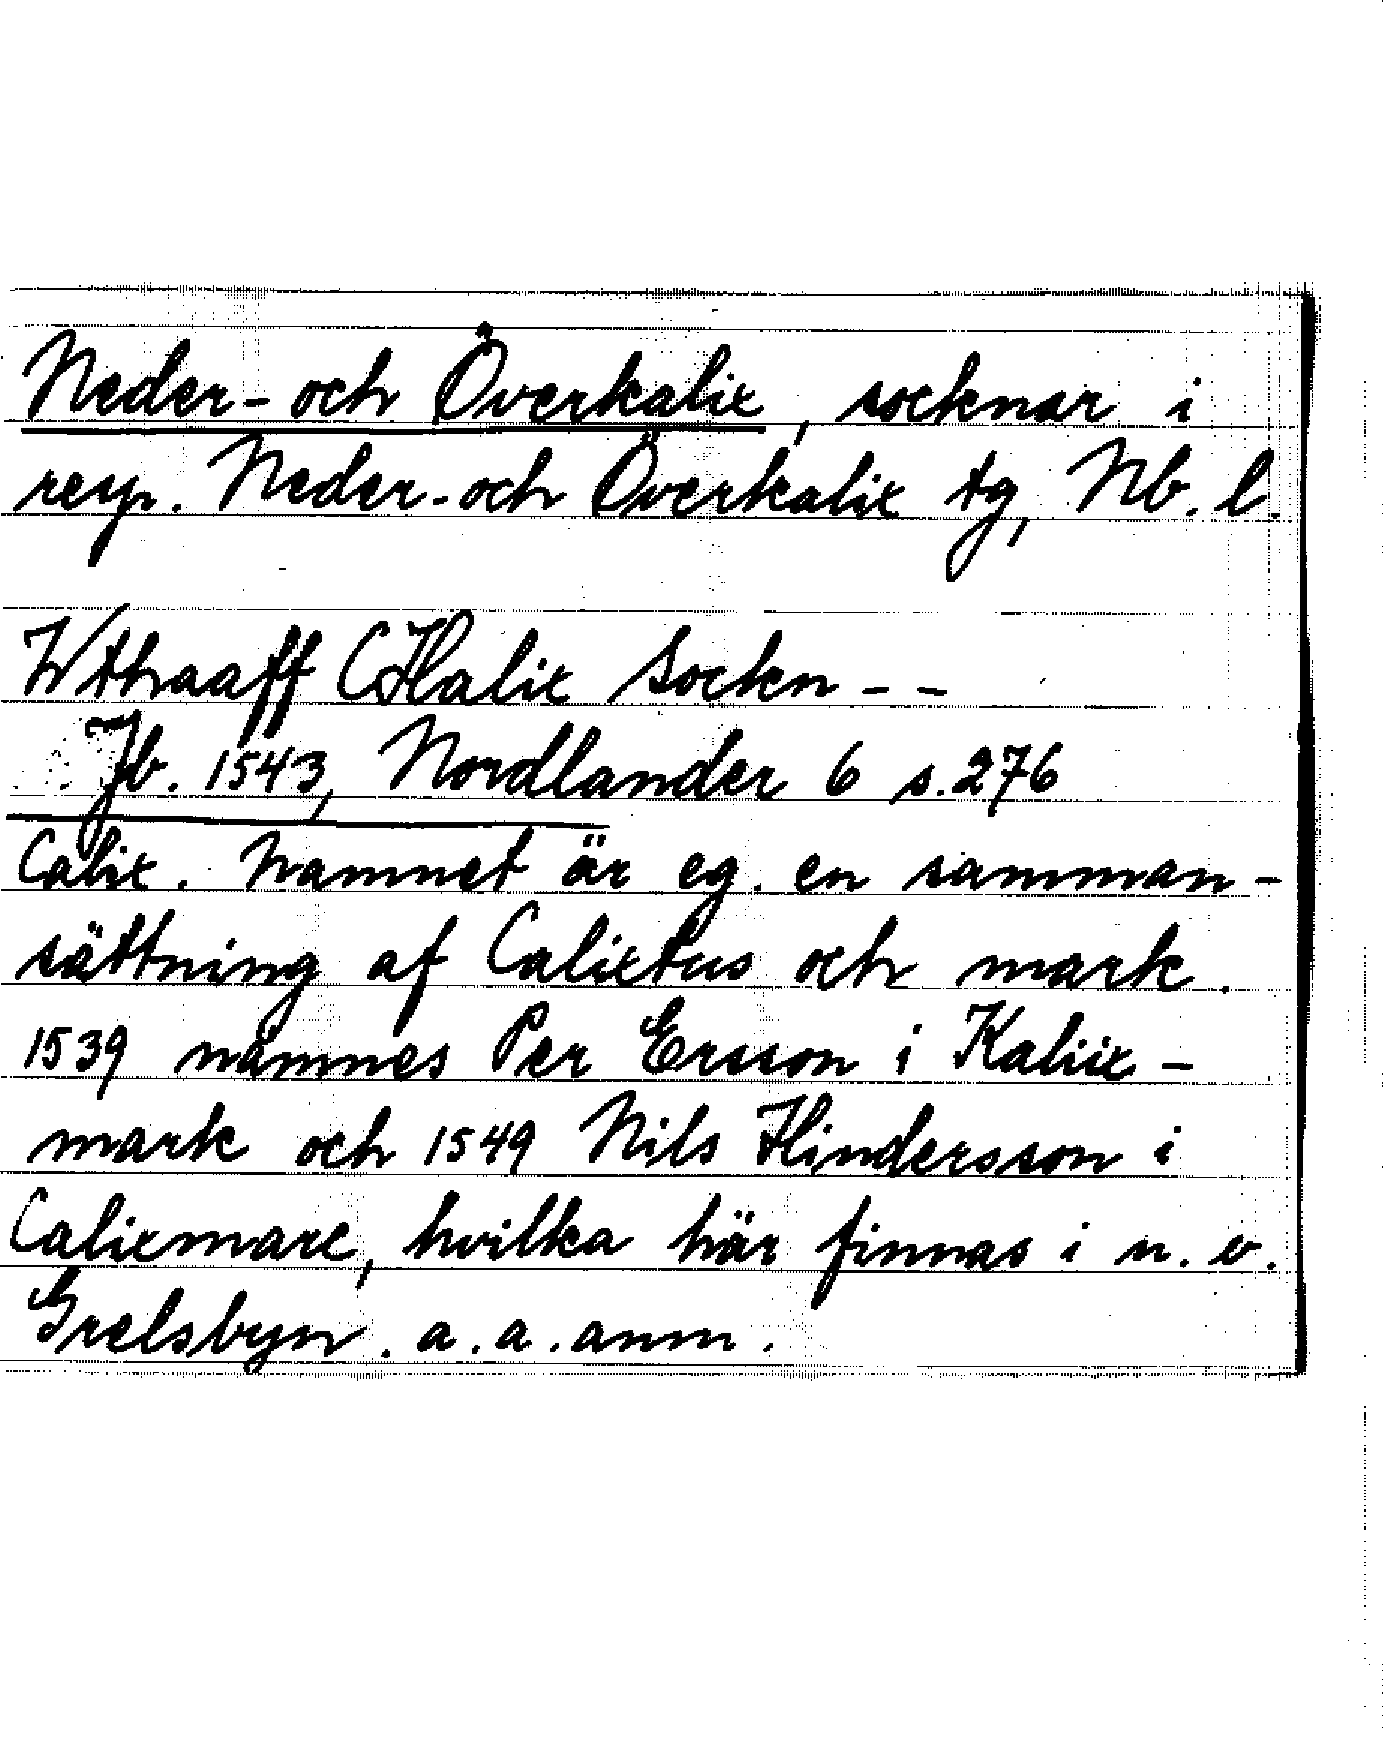 Neder- och Överkalix, socknar i
resp. Neder- och Överkalix tg, Nb. l.
Wthaaff CHalix Sockn - -
Jb. 1543, Nordlander 6 s. 276
Calix. Namnet är eg. en samman-
sättning af Calixtus och mark.
1539 nämnes Per Ersson i Kaliix-
mark och 1549 Nils Hindersson i
Calixmarc, hvilka här finnas i n. v.
Grelsbyn. a. a. anm.